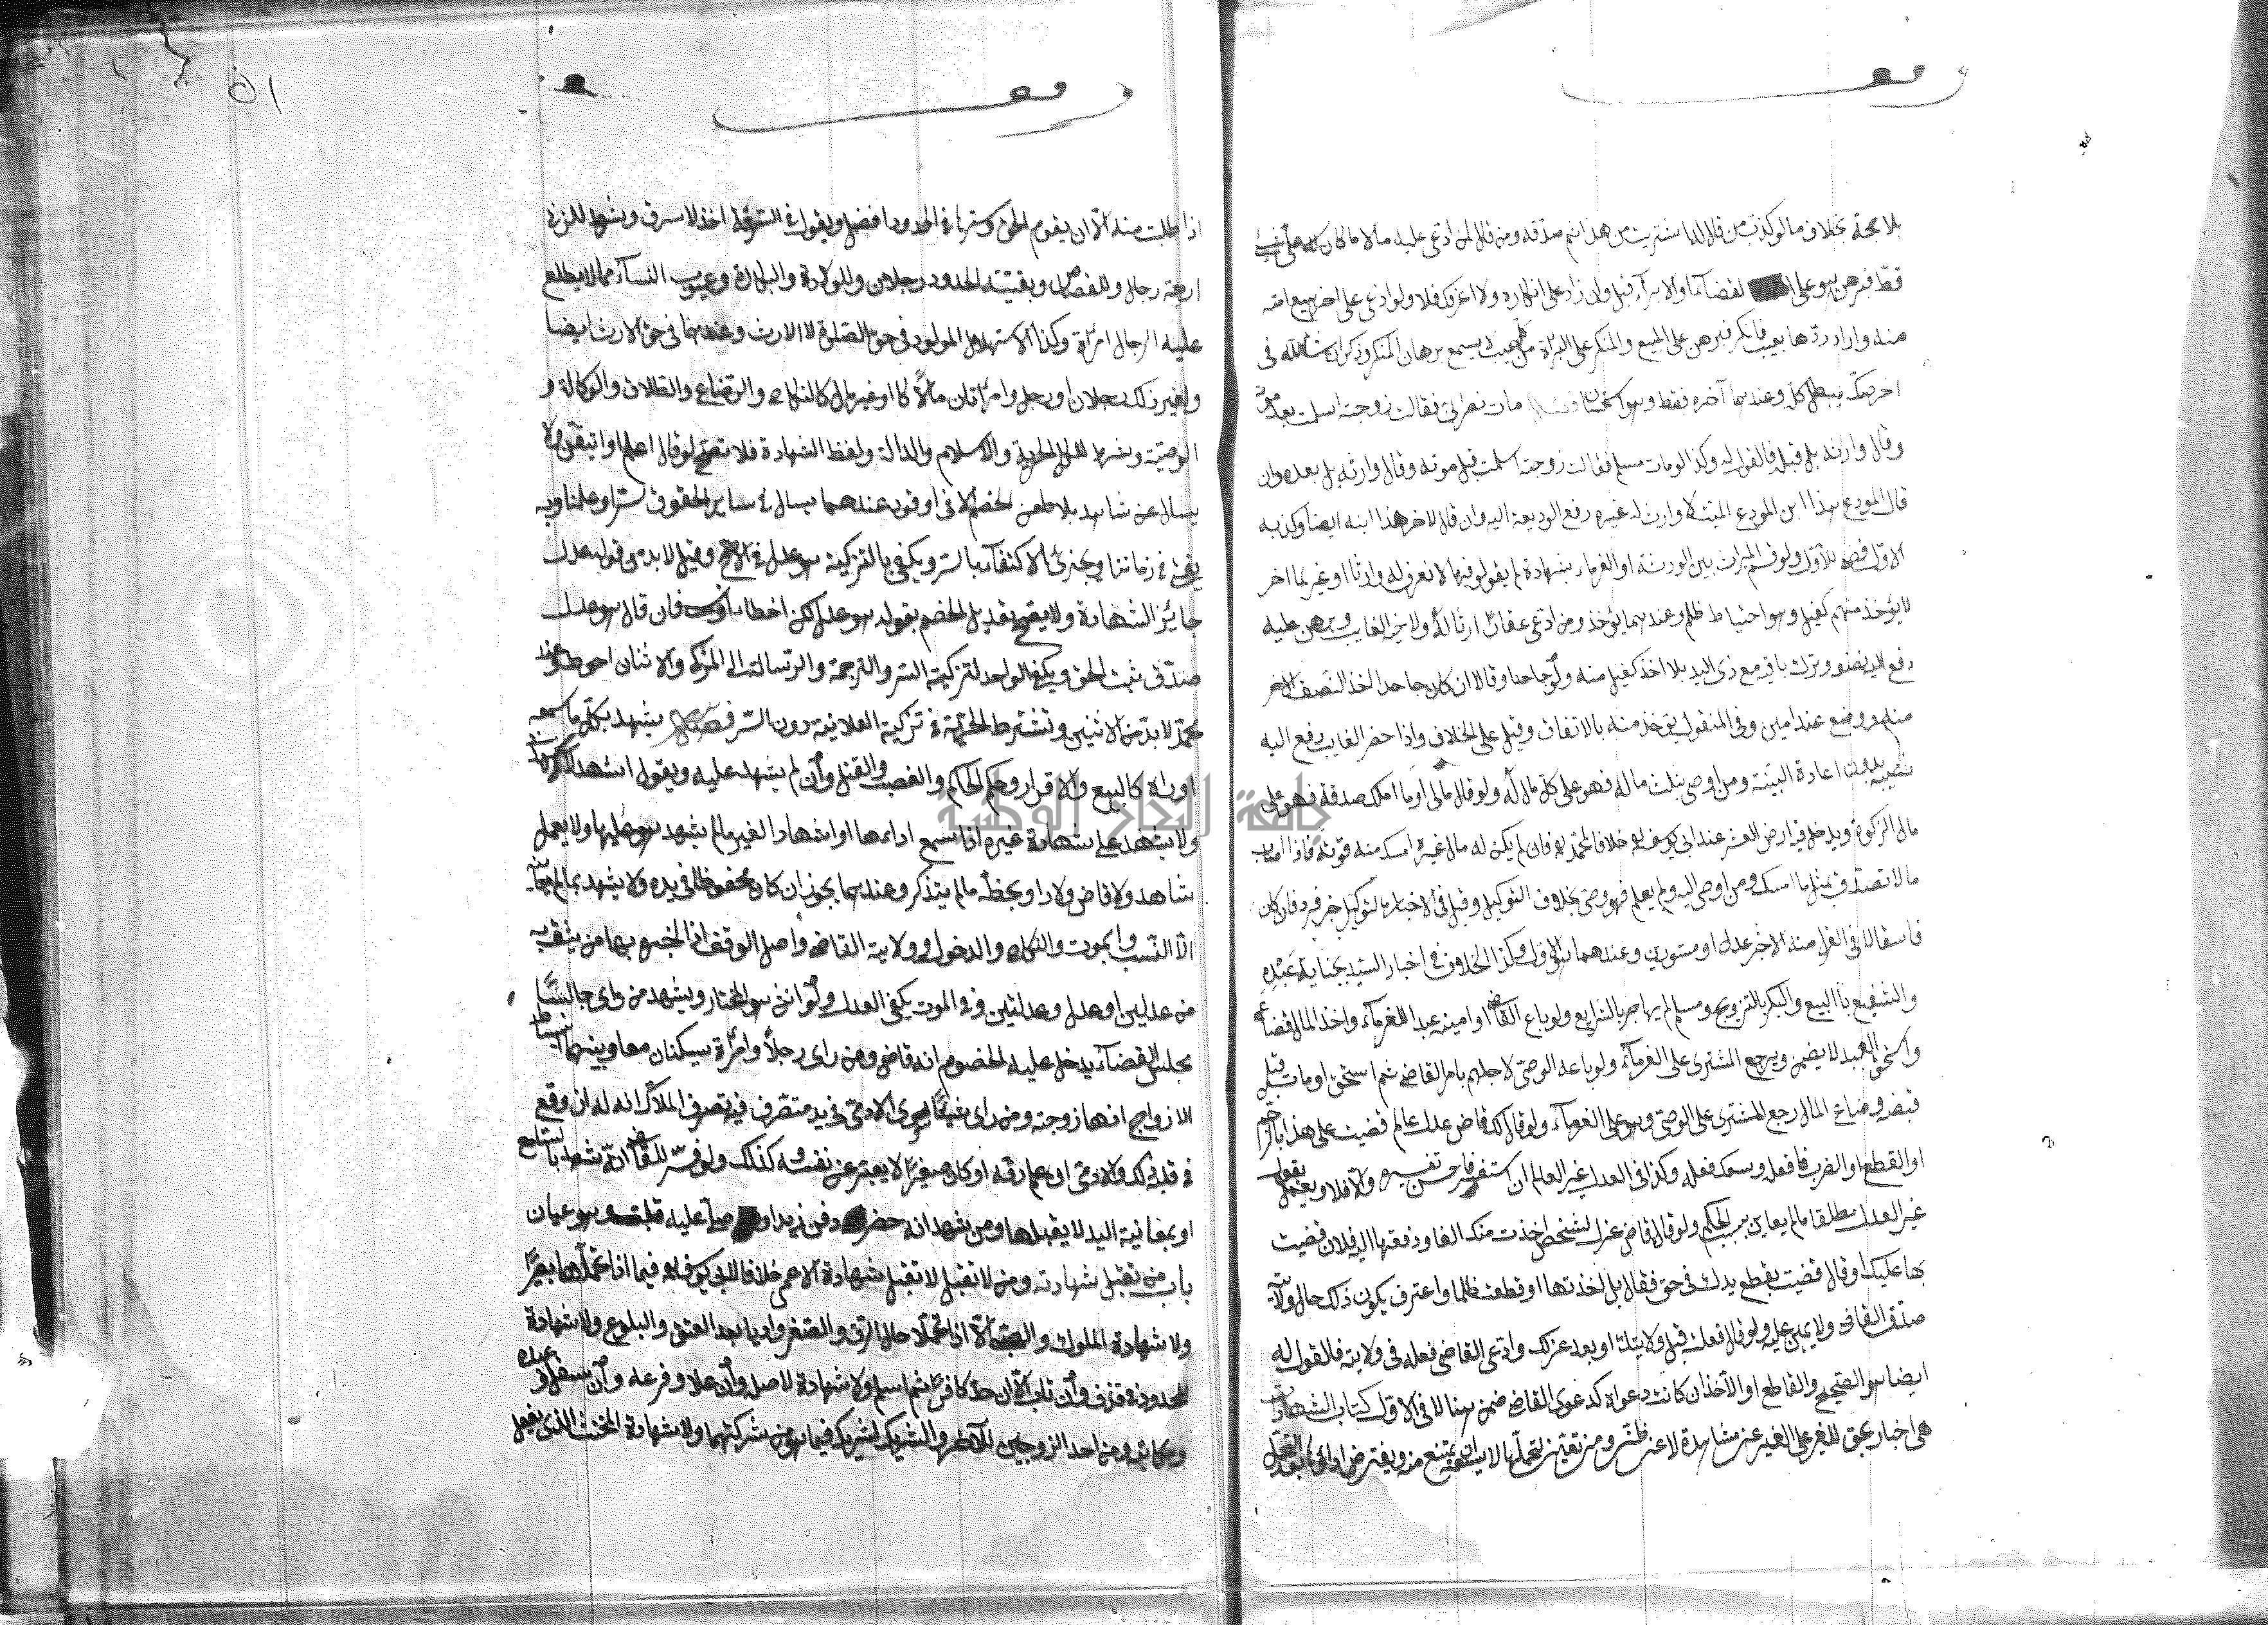 وقف
بلا حجة بخلاف ما لو كذب من قال له اشتريت من هذا ثم صدقه ومن قال لمن ادعى عليه مالا ما كان لك على شئ
قط فبرهن هو على لقضاء او الابراء قبل وان زاد على انكاره ولا اعرفك فلا ولو ادعى على اخر بيع امته
منه واراد ردها بعيب فانكر فبرهن على البيع والمنكر على البراة من العيب لا يسمع برهان المنكر وذكر ان شاء الله في
اخر صك يبطل كله وعندهما آخره فقط وهو استحسان مات نصراني فقالت زوجته اسلمت بعد موته
وقال وارثه بل قبله فالقول له وكذا لو مات مسلم فقالت زوجته اسلمت قبل موته وقال وارثه بل بعده وان
قال المودع هذا ابن المودع الميت لا وارث له غيره دفع الوديعة اليه وان قال لاخر هذا ابنه ايضا وكذبه
الاول قضى للاول ولو قسم الميراث بين الورثة او الغرماء بشهادة لم يقولوا فيها لا نعرف له وارثا او غريما اخر
لا يؤخذ منهم كفيل وهو احتياط ظلم وعندهما يؤخذ ومن ادعى عقارا ارثا له ولاخيه الغايب وبرهن عليه
دفع اليه نصفه وترك باقيه مع ذي اليد بلا اخذ كفيل منه ولو جاحدا وقالا ان كان جاحدا اخذ النصف الاخر
منه ووضع عند امين وفي المنقول يؤخذ منه بالاتفاق وقيل على الخلاف واذا حضر الغايب دفع اليه
نصيبه بدون اعادة البينة ومن اوصى بثلث ماله فهو على كل مال له ولو قال مالي او ما املك صدقة فهو على
مال الزكوة ويدخل فيه ارض العشر عند ابي يوسف خلافا لمحمد فان لم يكن له مال غيره امسك منه قوته فاذا اصاب
مالا تصدق بمثل ما امسك ومن اوصى اليه ولم يعلم فهو وصي بخلاف التوكيل وقبل في الاخبار بالتوكيل خبر فرد فان كان
فاسقا لا في العزل منه الا خبر عدل او مستورين وعندهما هو كالاول وكذا الخلاف في اخبار السيد بجناية عبده
والشفيع بالبيع والبكر بالتزويج ومسلم لم يهاجر بالشرايع ولو باع القاضي او امينه عبدا للغرماء واخذ المال فضاع
واستحق العبد لا يضمن ويرجع المشتري على الغرماء ولو باعه الوصي لاجلهم بامر القاضي ثم استحق او مات قبل
قبضه وضاع المال رجع المشتري على الوصي وهو على الغرماء ولو قال لك قاض عدل عالم قضيت على هذا بالرجم
او القطع او الضرب فافعله وسعك فعله وكذا في العدل غير العالم ان استفسر فاحسن تفسيره والا فلا ولا يعمل بقول
غير العدل مطلقا ما لم يعاين سبب الحكم ولو قال قاض عزل لشخص اخذت منك الفا ودفعتها الى فلان قضيت
بها عليك او قال قضيت بقطع يدك في حق فقال بل اخذتها او قطعت ظلما واعترف بكون ذلك حال ولايته
صدق القاضي ولا يمين عليه ولو قال فعلت قبل ولايتك او بعد عزلك وادعى القاضي فعله في ولايته فالقول له
ايضا هو الصحيح والقاطع او الآخذ ان كانت دعواه كدعوى القاضي ضمن هنا لا في الاول كتاب الشهادات
هي اخبار بحق للغير على الغير عن مشاهدة لا عن ظن ومن تعين لتحملها لا يسعه ان يمتنع منه ويفترض اداؤها بعد التحمل
وقف
٥١
اذا طلبت منه الا ان يقوم الحق وسترها في الحدود افضل ويقول في السرقة اخذ لا سرق وشهد للزنا
اربعة رجال وللقصاص وبقية الحدود رجلان وللولادة والبكارة وعيوب النساء مما لا يطلع
عليه الرجال امرأة وكذا الاستهلال المولود في حق الصلوة لا الارث وعندهما في حق الارث ايضا
ولغير ذلك رجلان او رجل وامرأتان مالا كان او غير مال كالنكاح والرضاع والطلاق والوكالة و
الوصية وشرط للكل الحرية والاسلام والعدالة ولفظ الشهادة فلا تصح لو قال اعلم او اتيقن ولا
يسال عن شاهد بلا طعن الخصم الا في حد او قود وعندهما يسال في ساير الحقوق سرا وعلنا وبه
يفتى في زماننا ويجزئ الاكتفاء بالسر ويكفي بالتزكية هو عدل في الاصح وقيل لابد من قوله عدل
جايز الشهادة ولا يصح تعديل الخصم بقوله هو عدل لكن اخطا او نسي فان قال هو عدل
صدق ثبت الحق ويكفي الواحد لتزكية السر والترجمة والرسالة الى المزكي والاثنان احوط وعند
محمد لابد من الاثنين وتشترط الحرية في تزكية العلانية دون السر فصل يشهد بكل ما سمعه
او راه كالبيع والاقرار وحكم الحاكم والغصب والقتل وان لم يشهد عليه ويقول اشهد لا اشهدني
ولا يشهد على شهادة غيره اذا سمع اداءها او اشهاد الغير ما لم يشهد هو عليها ولا يعمل
شاهد ولا قاض ولا راو بخطه ما لم يتذكر وعندهما يجوز ان كان محفوظا في يده ولا يشهد بما لم يعاينه
الا النسب والموت والنكاح والدخول وولاية القاضي واصل الوقف اذا اخبره بها من يثق به
من عدلين او عدل وعدلتين وفي الموت يكفي العدل ولو انثى هو المختار ويشهد من راى جالسا
مجلس القضاء يدخل عليه الخصوم انه قاض ومن راى رجلا وامرأة يسكنان معا وبينهما انبساط
الازواج انها زوجته ومن راى شيئا سوى الادمي في يد متصرف فيه تصرف الملاك انه له ان وقع
في قلبه ذلك والادمي ان علم رقه او كان صغيرا لا يعبر عن نفسه كذلك ولو فسر للقاضي انه يشهد بالتسامع
او بمعاينة اليد لا يقبلها ومن شهد انه حضر دفن زيد او صلى عليه قبلت وهو عيان
باب من تقبل شهادته ومن لا تقبل لا تقبل شهادة الاعمى خلافا لابي يوسف فيما اذا تحملها بصيرا
ولا شهادة المملوك والصبي الا اذا تحملا حال الرق والصغر واديا بعد العتق والبلوغ ولا شهادة
المحدود في قذف وان تاب الا ان حد كافرا ثم اسلم ولا شهادة لاصله وان علا وفرعه وان سفل وعبده
ومكاتبه ومن احد الزوجين للآخر والشريك لشريكه فيما هو من شركتهما ولا شهادة المخنث الذي يفعل
جامعة النجاح الوطنية